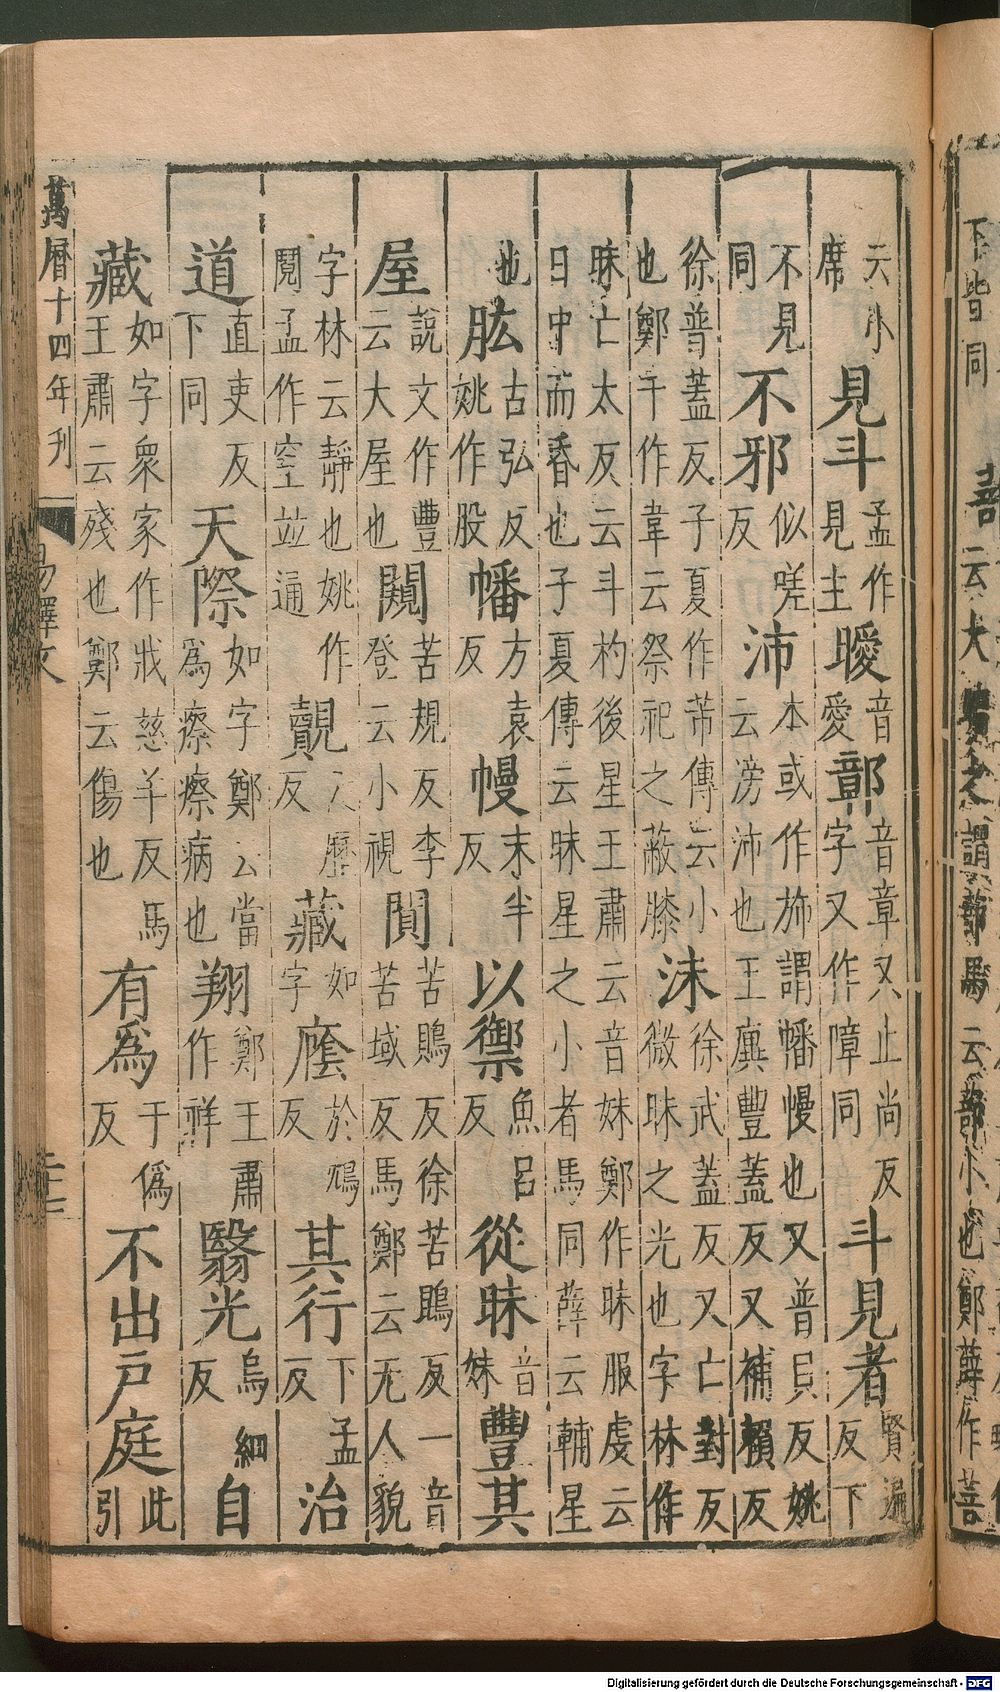 下皆同 蔀 云大暗之謂蔀馬云蔀小也鄭薛作菩
云小席見斗孟作見主曖音愛鄣音章又止尚反字又作障同斗見者賢遍反下
不見同不邪似嗟反沛本或作斾謂幡幔也又普貝反姚云滂沛也王廙豐蓋反又補賴反
徐普蓋反子夏作芾傳云小也鄭干作韋云祭祀之蔽膝沬徐武蓋反又亡對反微昧之光也字林作
昧亡太反云斗杓後星王肅云音妹鄭作昧服虔云日中而昏也子夏傳云昧星之小者馬同薛云輔星
也肱古弘反姚作股幡方袁反幔末半反以禦魚呂反從昧音妹豐其
屋說文作豐云大屋也闚苦規反李登云小視閴苦鶪反徐苦鶪反一音苦域反馬鄭云无人貌
字林云靜也姚作閱孟作窒並通覿大歷反藏如字廕於鴆反其行下孟反治
道直吏反下同天際如字鄭云當為瘵瘵病也翔鄭王肅作祥翳光烏細反自
藏如字衆家作戕慈羊反馬王肅云殘也鄭云傷也有為于偽反不出戶庭此引
萬曆十四年刊 易釋文